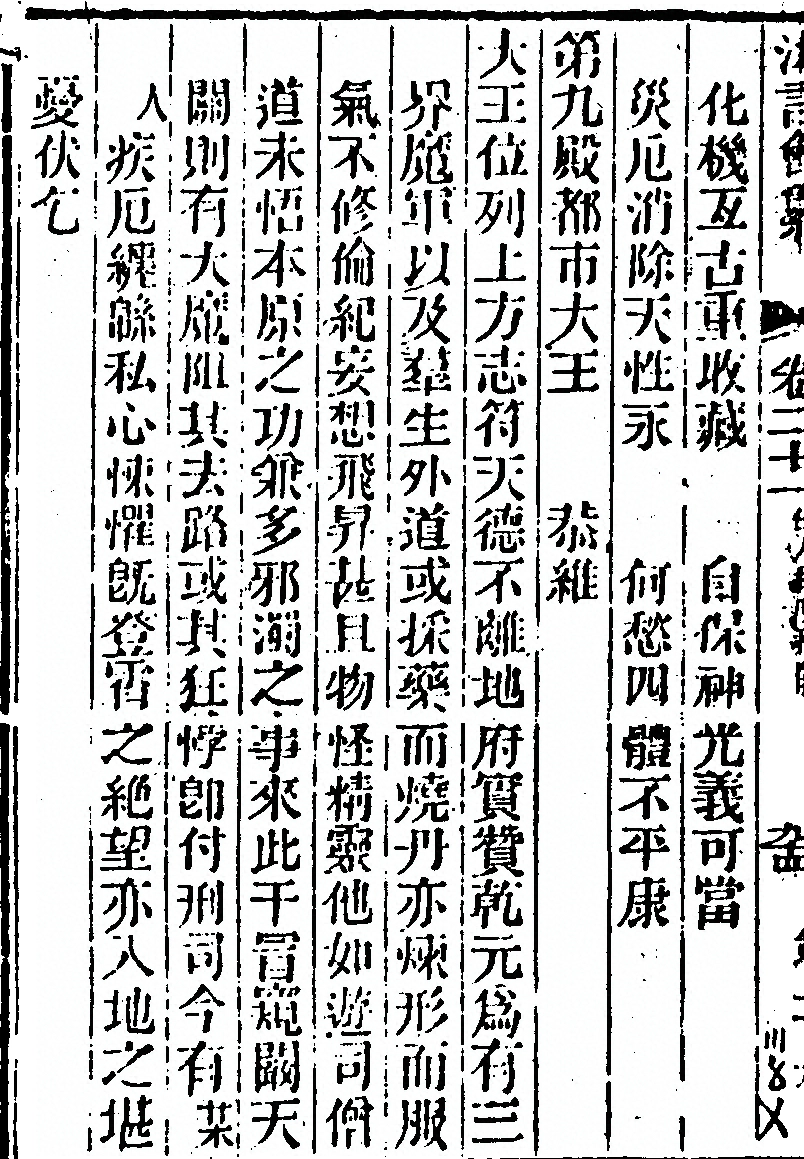 法言會纂 卷二十一
化機亙古重收藏 自保神光義可當
災厄消除天性永 何愁四體不平康
第九殿都市大王 恭維
大王位列上方志符天德不離地府實贊乾元為有三
界魔軍以及羣生外道或採藥而燒丹亦煉形而服
氣不修倫紀妄想飛昇甚且物怪精靈他如遊司僧
道未悟本原之功兼多邪溺之事來此干冒窺闕天
關則有大魔阻其去路或其狂悖卽付刑司今有某
人疾厄纏綿私心悚懼旣登霄之絶望亦入地之堪
憂伏乞